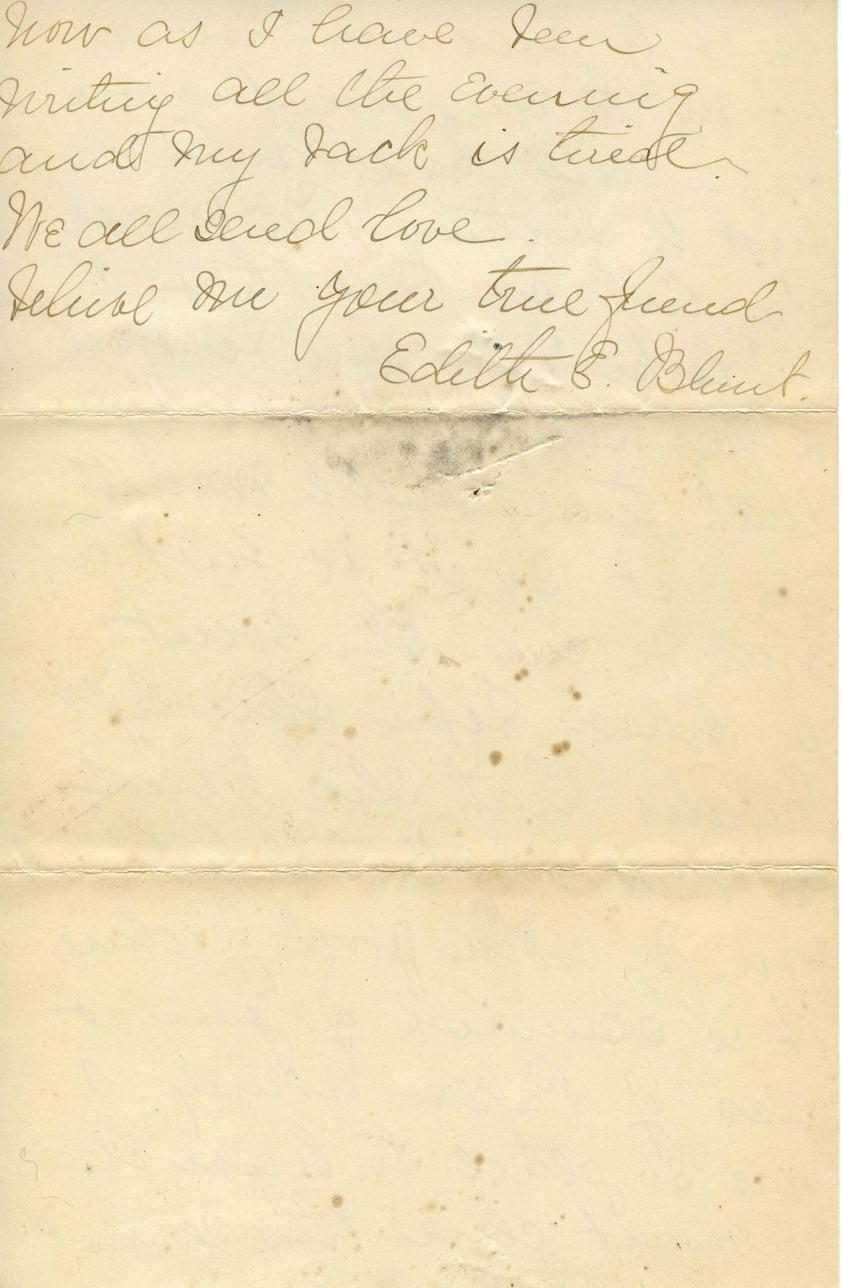 now as I have been
writing all the evening
and my back is tired.
We all send love.
Believe me your true friend
Edith E. Blunt.